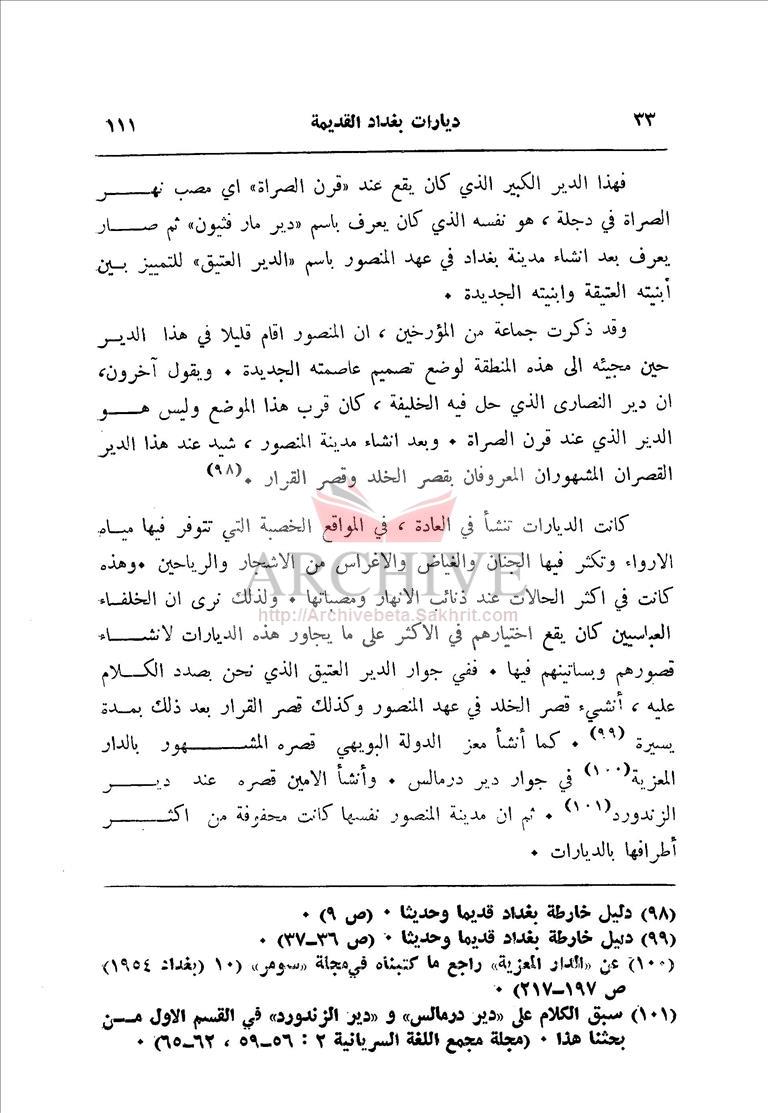 ٣٣ ديارات بغداد القديمة ١١١
فهذا الدير الكبير الذي كان يقع عند «قرن الصراة» اي مصب نهـــــر
الصراة في دجلة ، هو نفسه الذي كان يعرف باسم «دير مار فثيون» ثم صـــار
يعرف بعد انشاء مدينة بغداد في عهد المنصور باسم «الدير العتيق» للتمييز بـين
أبنيته العتيقة وابنيته الجديدة ٠
وقد ذكرت جماعة من المؤرخين ، ان المنصور اقام قليلا في هذا الديـر
حين مجيئه الى هذه المنطقة لوضع تصميم عاصمته الجديدة ٠ ويقول آخرون،
ان دير النصارى الذي حل فيه الخليفة ، كان قرب هذا الموضع وليس هـــو
الدير الذي عند قرن الصراة ٠ وبعد انشاء مدينة المنصور ، شيد عند هذا الدير
القصران المشهوران المعروفان بقصر الخلد وقصر القرار ٠(٩٨)
كانت الديارات تنشأ في العادة ، في المواقع الخصبة التي تتوفر فيها ميـاه
الارواء وتكثر فيها الجنان والغياض والاغراس من الاشجار والرياحين ٠وهذه
كانت في اكثر الحالات عند ذنائب الانهار ومصباتها ٠ ولذلك نرى ان الخلفـاء
العباسيين كان يقع اختيارهم في الاكثر على ما يجاور هذه الديارات لانشـــاء
قصورهم وبساتينهم فيها ٠ ففي جوار الدير العتيق الذي نحن بصدد الكـــلام
عليه ، أنشيء قصر الخلد في عهد المنصور وكذلك قصر القرار بعد ذلك بمـدة
يسيرة (٩٩) ٠ كما أنشأ معز الدولة البويهي قصره المشـــــهور بالدار
المعزية(١٠٠) في جوار دير درمالس ٠ وأنشأ الامين قصره عند ديـــر
الزندورد(١٠١) ٠ ثم ان مدينة المنصور نفسها كانت محفوفة من اكثـــــر
أطرافها بالديارات ٠
ARCHIVE
http://Archivebeta.Sakhrit.com
(٩٨) دليل خارطة بغداد قديما وحديثا ٠ (ص ٩) ٠
(٩٩) دليل خارطة بغداد قديما وحديثا ٠ (ص ٣٦ـ٣٧) ٠
(١٠٠) عن «الدار المعزية» راجع ما كتبناه في مجلة «سومر» (١٠ (بغداد ١٩٥٤)
ص ١٩٧ـ٢١٧) ٠
(١٠١) سبق الكلام على «دير درمالس» و «دير الزندورد» في القسم الاول مــن
بحثنا هذا ٠ (مجلة مجمع اللغة السريانية ٢ : ٥٦ـ٥٩ ، ٦٢ـ٦٥) ٠